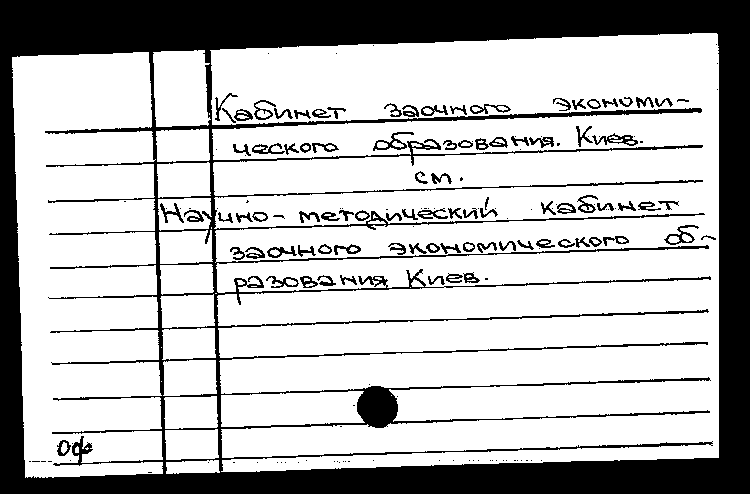 Кабинет заочного экономи-
ческого образования. Киев.
см.
Научно-методический кабинет
заочного экономического об-
разования, Киев.
оф